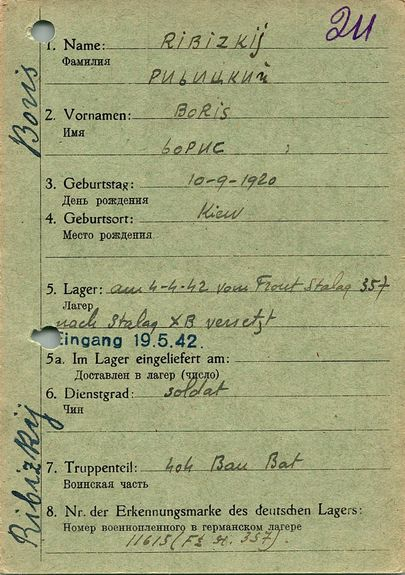 211
1. Name: RIBIZKIJ
Фамилия
РИБИЦКИЙ
2. Vornamen: BORIS
Имя
БОРИС
3. Geburtstag: 10-9-1920
День рождения
4. Geburtsort: Kiew
Место рождения
5. Lager: am 4-4-42 vom Front Stalag 357
Лагер
nach Stalag XB versetzt
Eingang 19.5.42.
5a. Im Lager eingeliefert am:
Доставлен в лагер (число)
6. Dienstgrad: soldat
Чин
7. Truppenteil: 404 Bau Bat
Воинская часть
8. Nr. der Erkennungsmarke des deutschen Lagers:
Номер военнопленного в германском лагере
11615 (Fz st. 357).
Boris
Ribizkij